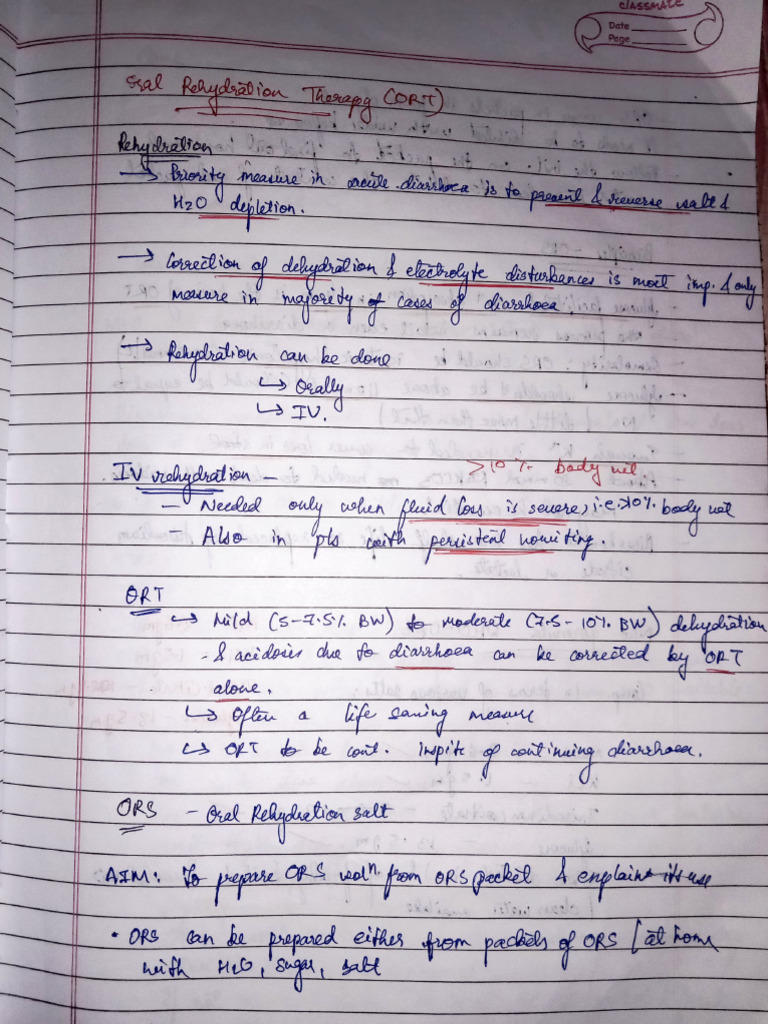 CLASSMATE
Date
Page
Oral Rehydration Therapy (ORT)
Rehydration
→ Priority measure in acute diarrhoea is to prevent & reverse salt &
H2O depletion.
→ Correction of dehydration & electrolyte disturbances is most imp. & only
measure in majority of cases of diarrhoea.
→ Rehydration can be done
↳ Orally
↳ IV.
>10% body wt
IV rehydration –
– Needed only when fluid loss is severe, i.e. >10% body wt
– Also in pts with persistent vomiting.
ORT
↳ Mild (5-7.5% BW) to moderate (7.5-10% BW) dehydration
& acidosis due to diarrhoea can be corrected by ORT
alone.
↳ Often a life saving measure
↳ ORT to be cont. inspite of continuing diarrhoea.
ORS – Oral Rehydration salt
AIM: To prepare ORS solⁿ from ORS packet & explain its use
• ORS can be prepared either from packets of ORS / at home
with H2O, sugar, salt